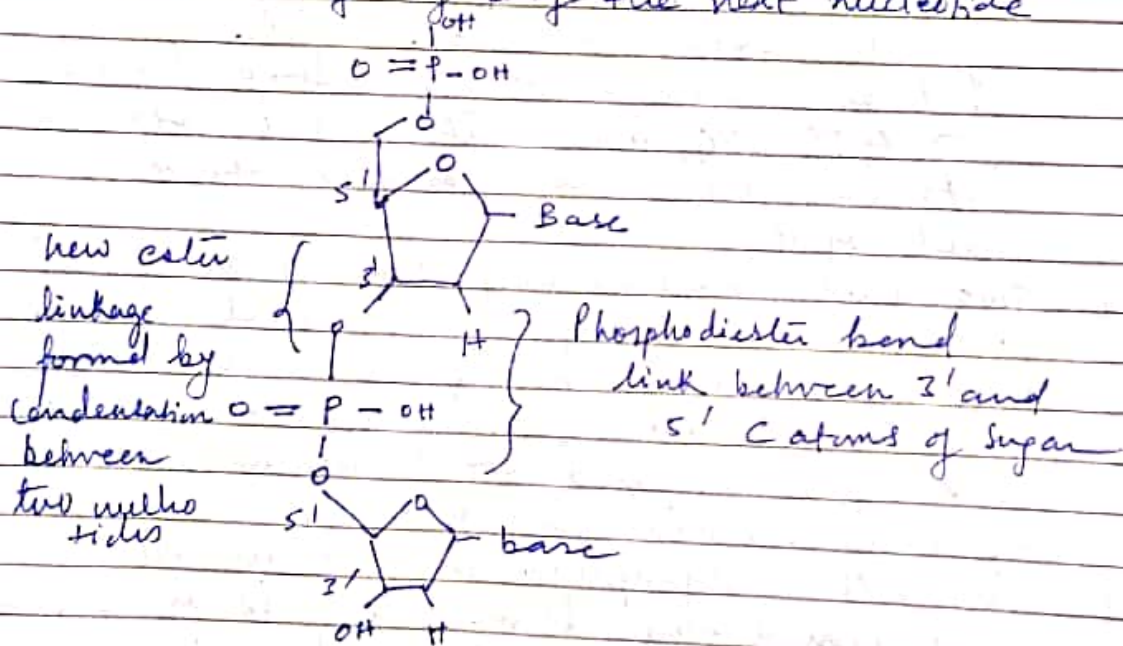 the next nucleotide
OH
O = P - OH
O
O
5'
Base
3'
H
new ester
linkage
formed by
Condensation
between
two nucleo
tides
Phosphodiester bond
link between 3' and
5' C atoms of Sugar
O = P - OH
O
5'
O
base
3'
OH H